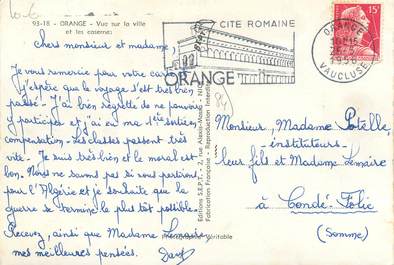 10-6
93-18 - ORANGE - Vue sur la ville
et les casernes
Chers monsieur et madame,
Je vous remercie pour votre carte
J'espère que le voyage s'est très bien
passé. J'ai bien regretté de ne pouvoir
y participer et j'ai eu ma 1ère sortie en
compensation. Les classes passent très
vite. Je suis très bien et le moral est
bon. Nous ne savons pas si nous partirons
pour l'Algérie et je souhaite que la
guerre se termine le plus tôt possible.
Recevez, ainsi que Madame Lemaire,
mes meilleures pensées.
CITÉ ROMAINE
ORANGE
ORANGE
VAUCLUSE
15F
84
Editions S.E.P.T. - 2, rue Alsace-Lorraine - NICE
Fabrication Française - Reproduction Interdite
véritable
Monsieur, Madame Potelle,
instituteurs
leur fils et Madame Lemaire
à Condé-Folie
(Somme)